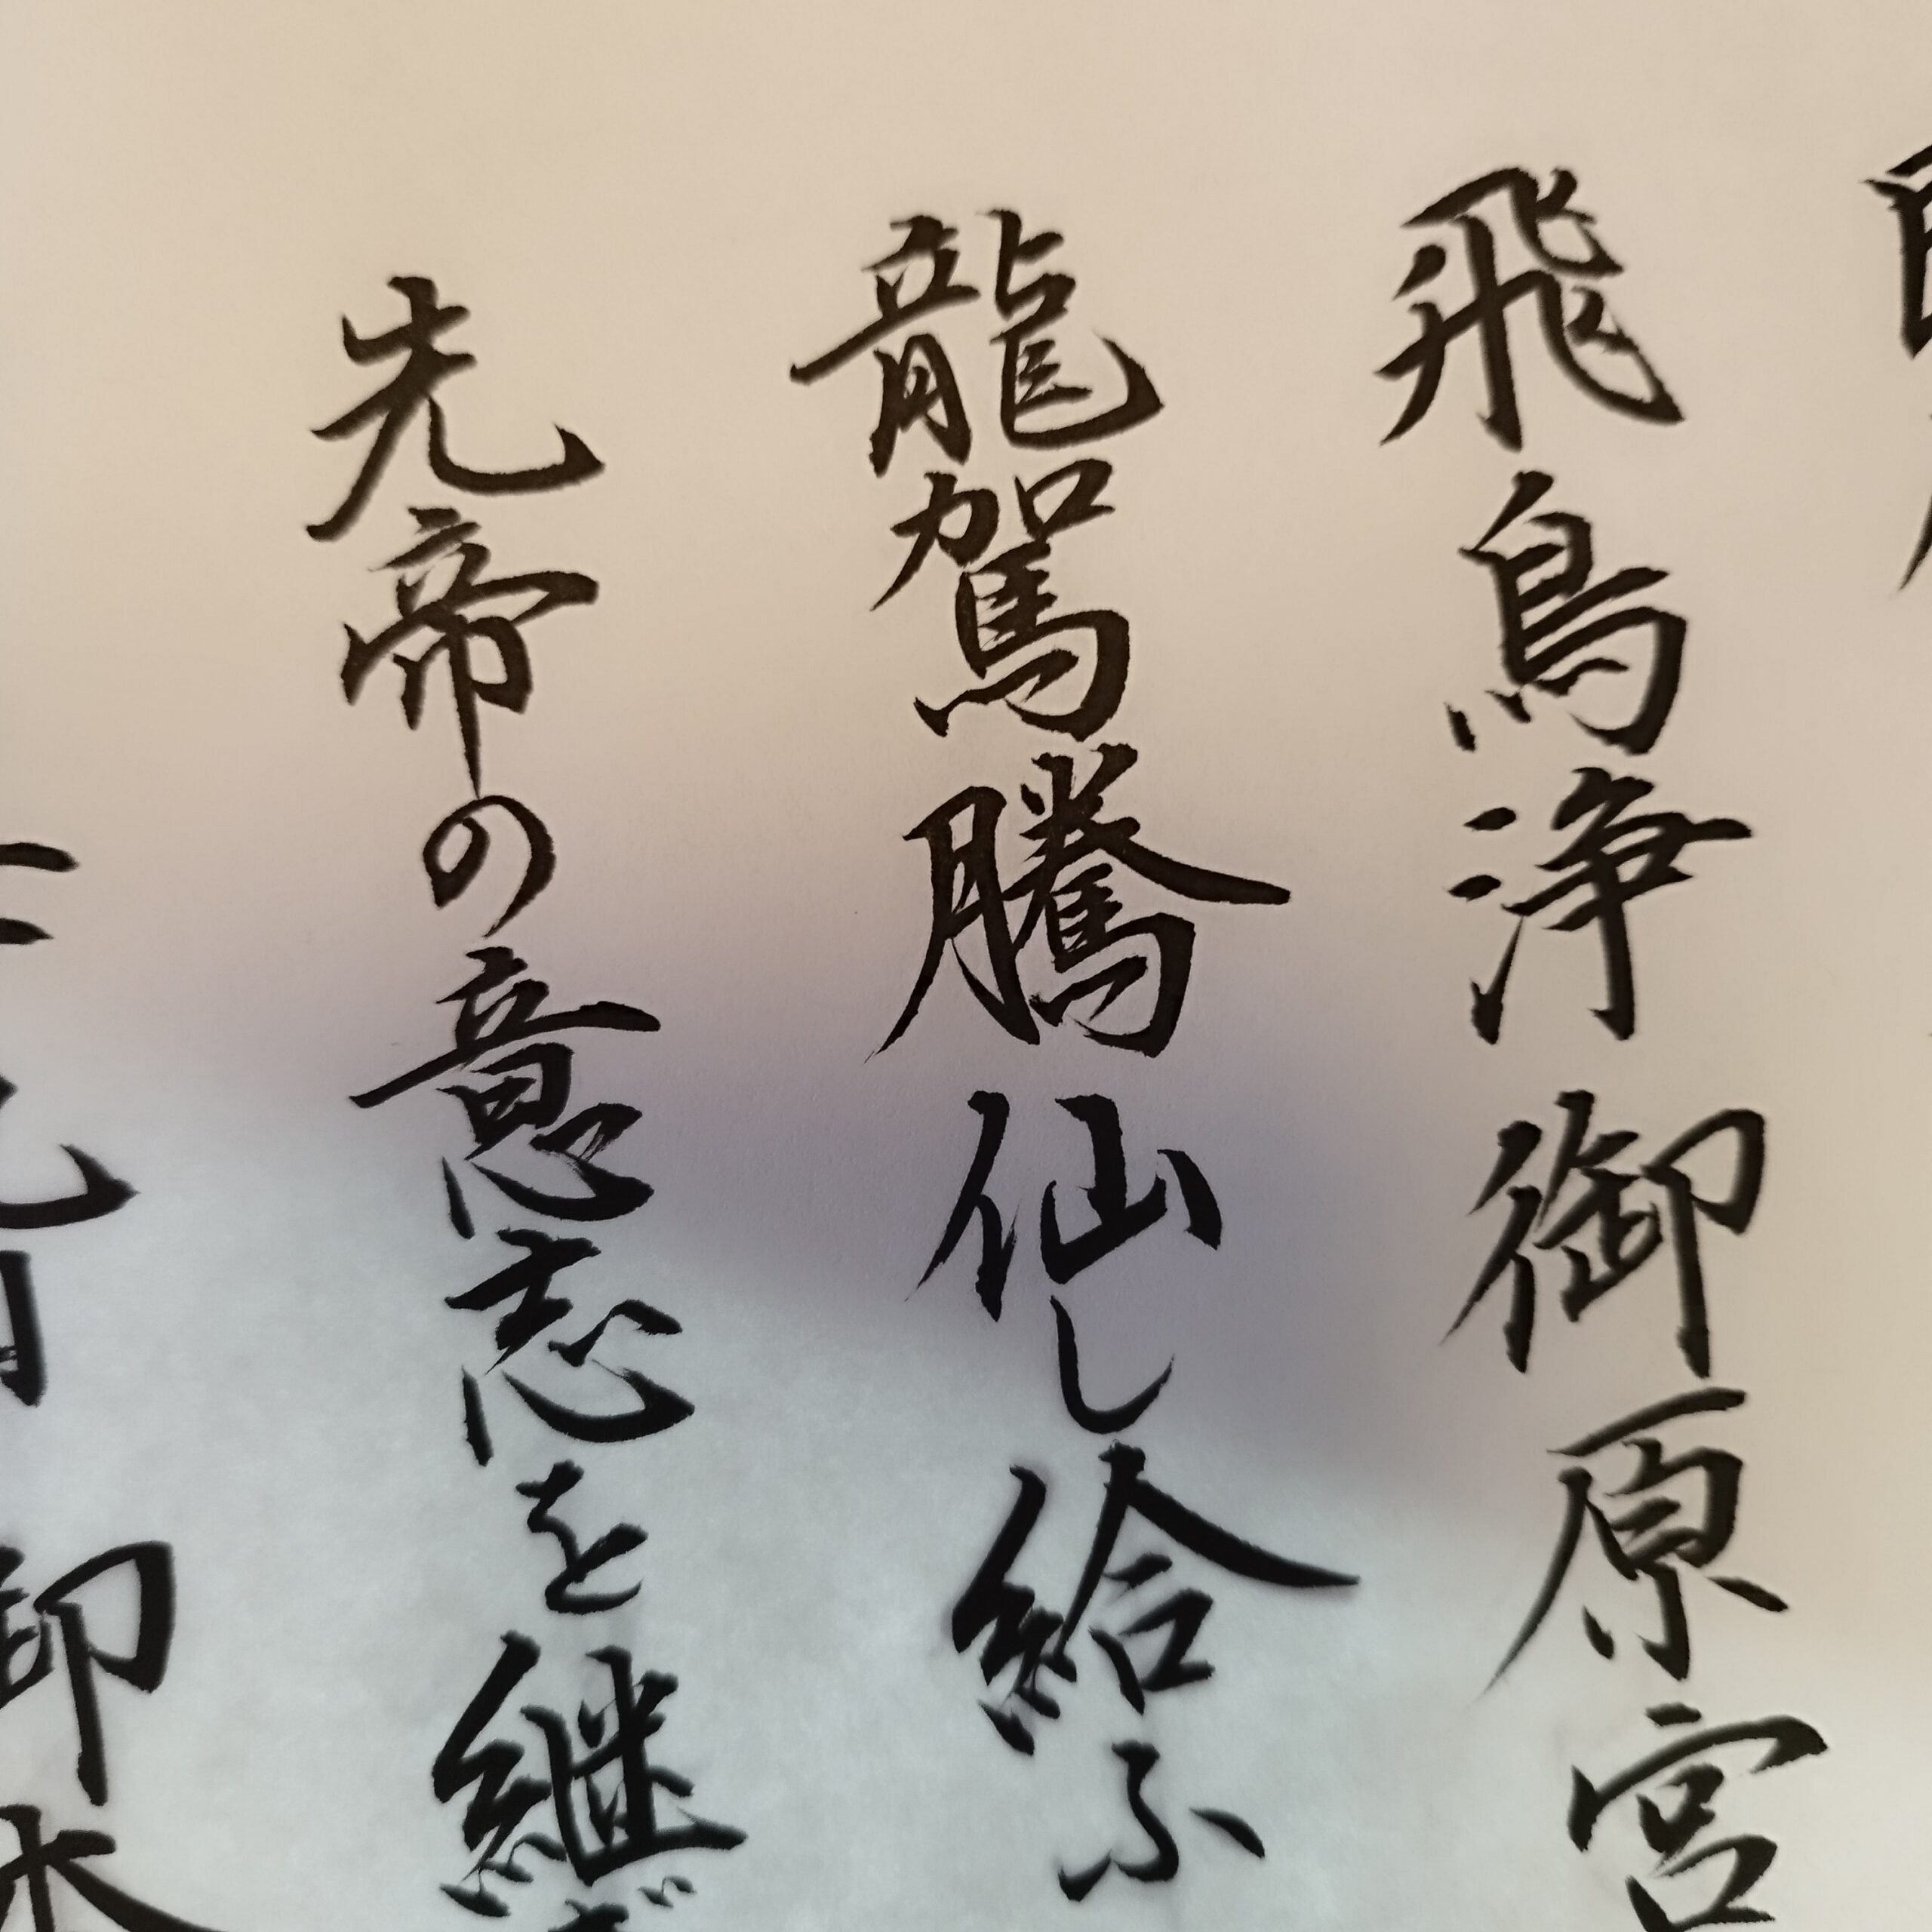 飛鳥浄御原宮
龍駕騰仙し給ふ
先帝の意志を継